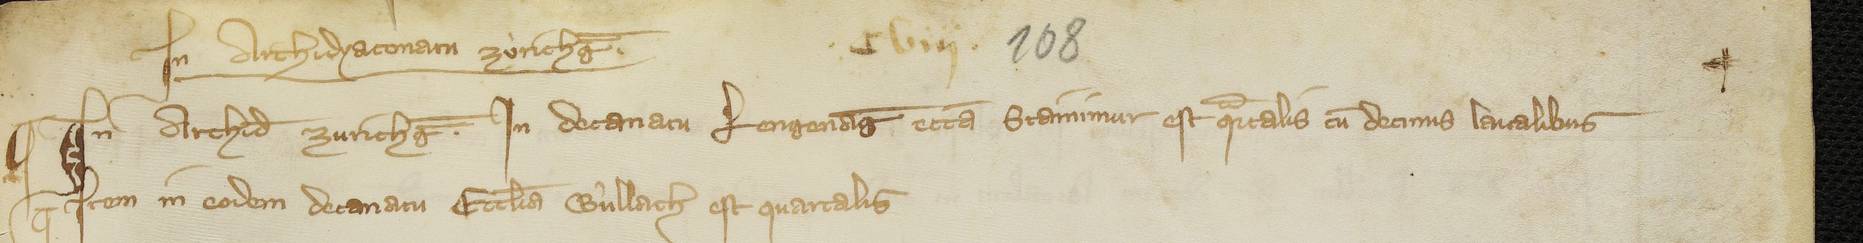 In Archidyaconatu Zúrichg̅. C Viij. 108
In Archid Zurichg̅. In decanatu Kengenág eccā Stāmimur est qͣrtalis cū decimis laicalibus
Item in eodem decanatu Eccl̄ia Búllach est quartalis